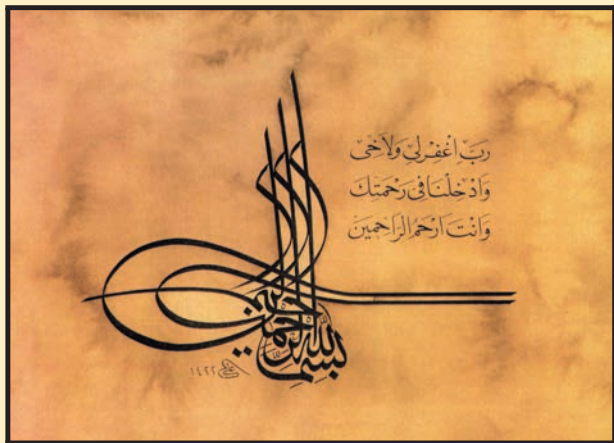 رَبِّ اغْفِرْ لِي وَلِاَخِى
وَاَدْخِلْنَا فِى رَحْمَتِكَ
وَاَنْتَ اَرْحَمُ الرَّاحِمِينَ
بسم الله الرحمن الرحيم
١٤٢٢